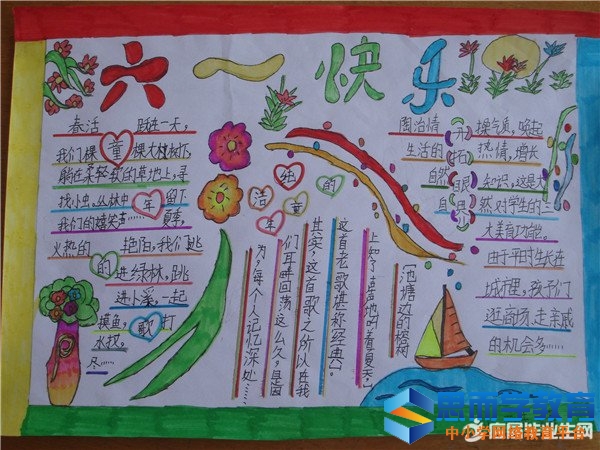 六一快乐
春活 跃在一天,
我们棵 童 棵大植树下
躺在柔轻软的草地上,寻
找小虫,丛林中 年 留下
我们的嬉笑声…… 夏季,
火热的 艳阳,我们跳
的 进绿林,跳
进小溪,一起
摸鱼, 歌 打
水仗,
尽……
纯洁的童年
《池塘边的榕树
上知了在声声地叫着夏天,
这首老歌堪称经典。
其实,这首歌之所以在我
们耳畔回荡这么久,是因
为,每个人记忆深处……
开拓眼界
陶冶情 操气质,唤起
生活的 热情,增长
自然 知识,这是大
自 然对学生的一
大美育功能。
由于平时生长在
城市里,孩子们
逛商场、走亲戚
的机会多……
中小学四维联盟平台
应届毕业生网